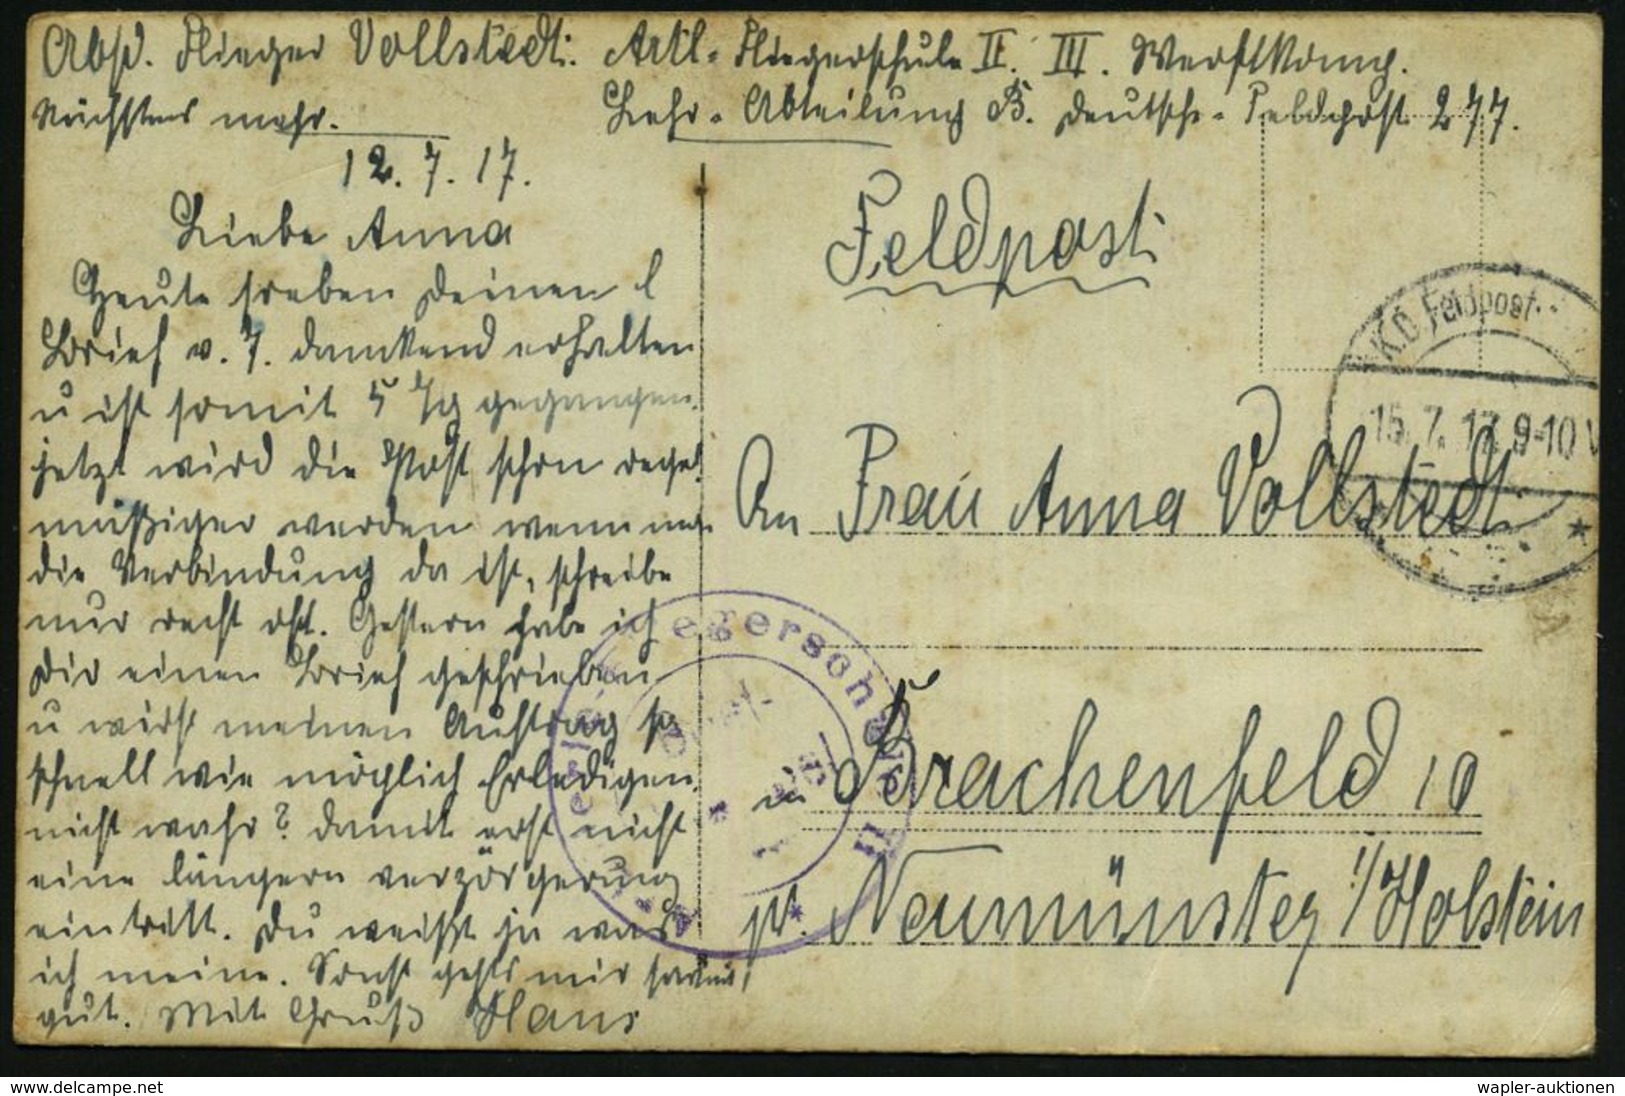 Abs. Flieger Vollstedt. Artl-Fliegerschule II. III. Werftkomp.
Lehr-Abteilung B. Deutsche-Feldpost 277.
Nächstens mehr.
12.7.17.
Liebe Anna
Heute soeben Deinen l
Brief v. 7. dankend erhalten
u ist somit 5 Tg gegangen.
jetzt wird die Post schon regel
mäßiger werden wenn
die Verbindung da ist, schreibe
nur recht oft. Gestern habe ich
Dir einen Brief geschrieben
u wirst meinen Auftrag so
schnell wie möglich Erledigen.
nicht wahr? damit erst nicht
eine längern verzörgerung
eintritt. Du weißt ja was
ich meine. Sonst gehts mir
gut. Mit Gruß Hans
Feldpost
K.D. Feldpost
15.7.17.9-10V
An Frau Anna Vollstedt.
in Brachenfeld 10
pr. Neumünster i/Holstein
egerschule II
www.delcampe.net
wapler-auktionen